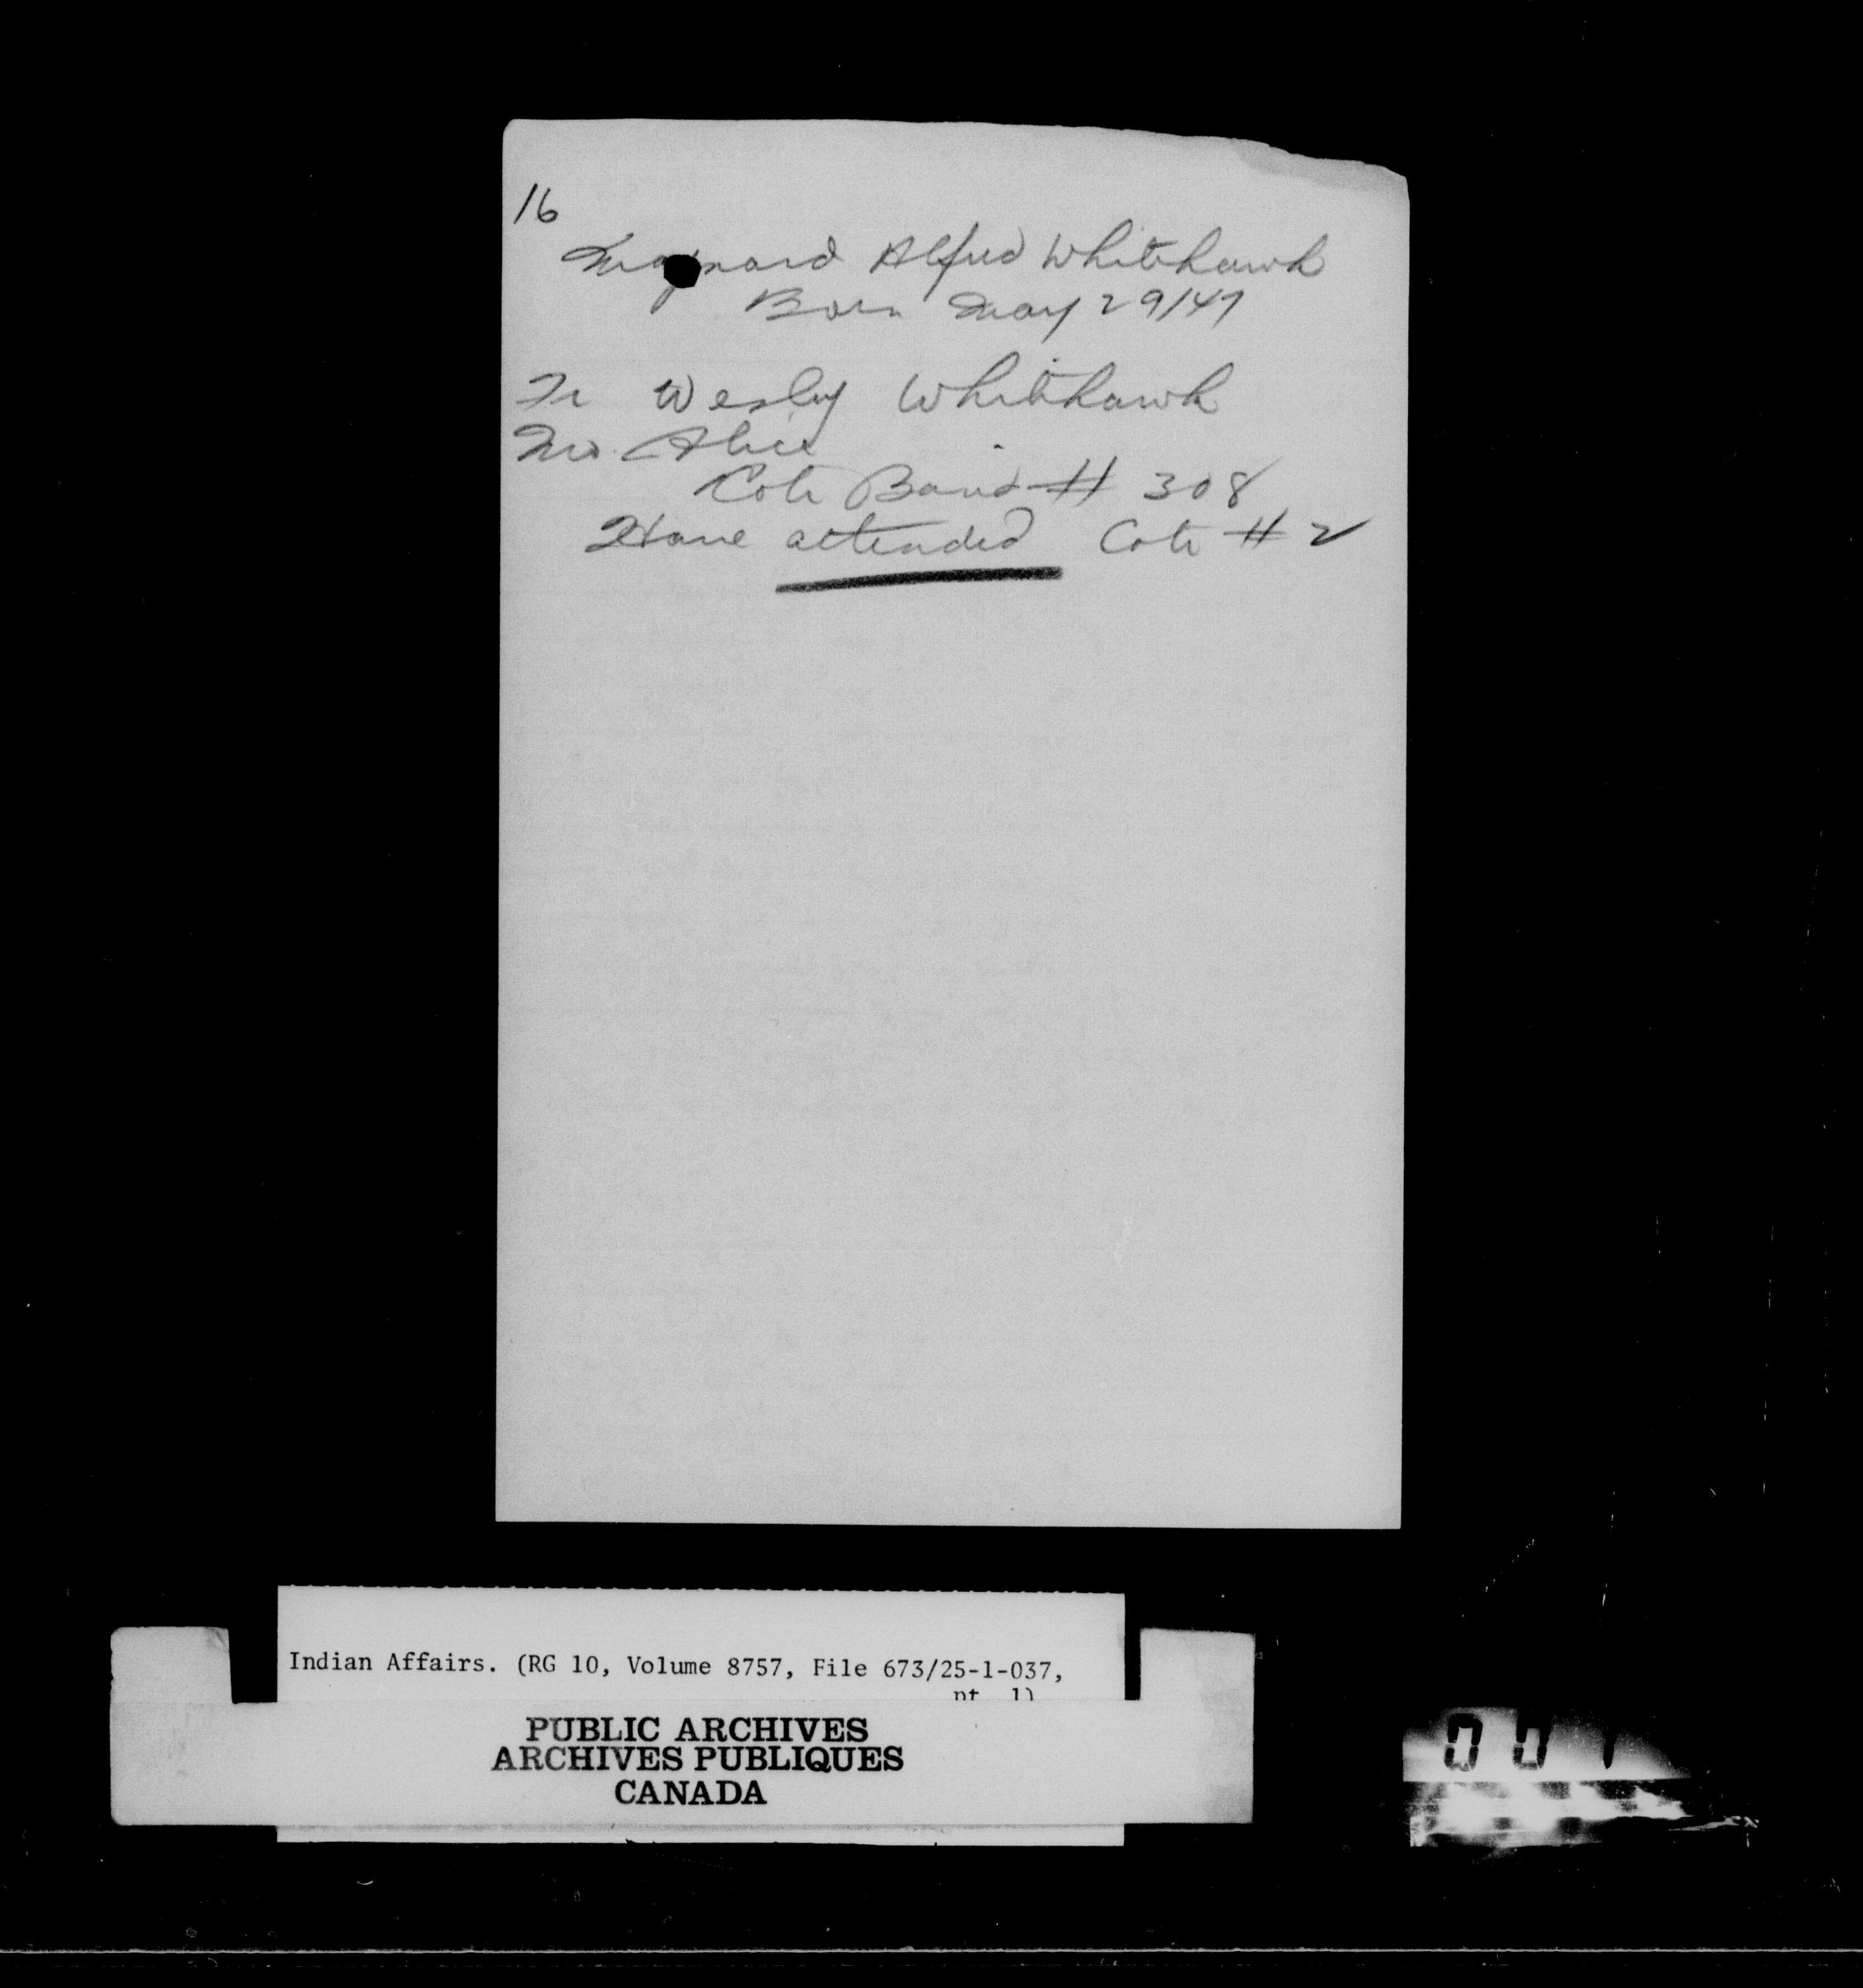 16
Maynard Alfred Whitehawk
Born May 29/47
Fr Wesley Whitehawk
Mo. Alice
Cote Band # 308
Have attended Cote # 2
Indian Affairs. (RG 10, Volume 8757, File 673/25-1-037,
pt. 1)
PUBLIC ARCHIVES
ARCHIVES PUBLIQUES
CANADA